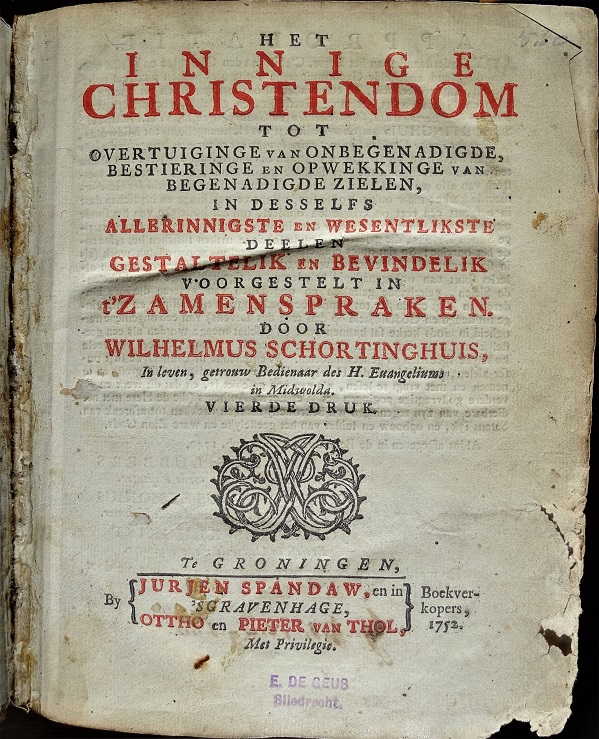 HET
INNIGE
CHRISTENDOM
TOT
OVERTUIGINGE VAN ONBEGENADIGDE,
BESTIERINGE EN OPWEKKINGE VAN
BEGENADIGDE ZIELEN,
IN DESSELFS
ALLERINNIGSTE EN WESENTLIKSTE
DEELEN
GESTALTELIK EN BEVINDELIK
VOORGESTELT IN
t'ZAMENSPRAKEN.
DOOR
WILHELMUS SCHORTINGHUIS,
In leven, getrouw Bedienaar des H. Euangeliums
in Midwolda.
VIERDE DRUK.
Te GRONINGEN,
By JURJEN SPANDAW, en in
'sGRAVENHAGE,
OTTHO en PIETER VAN THOL,
Boekver-
kopers,
1752.
Met Privilegie.
E. DE GEUS
Sliedrecht.